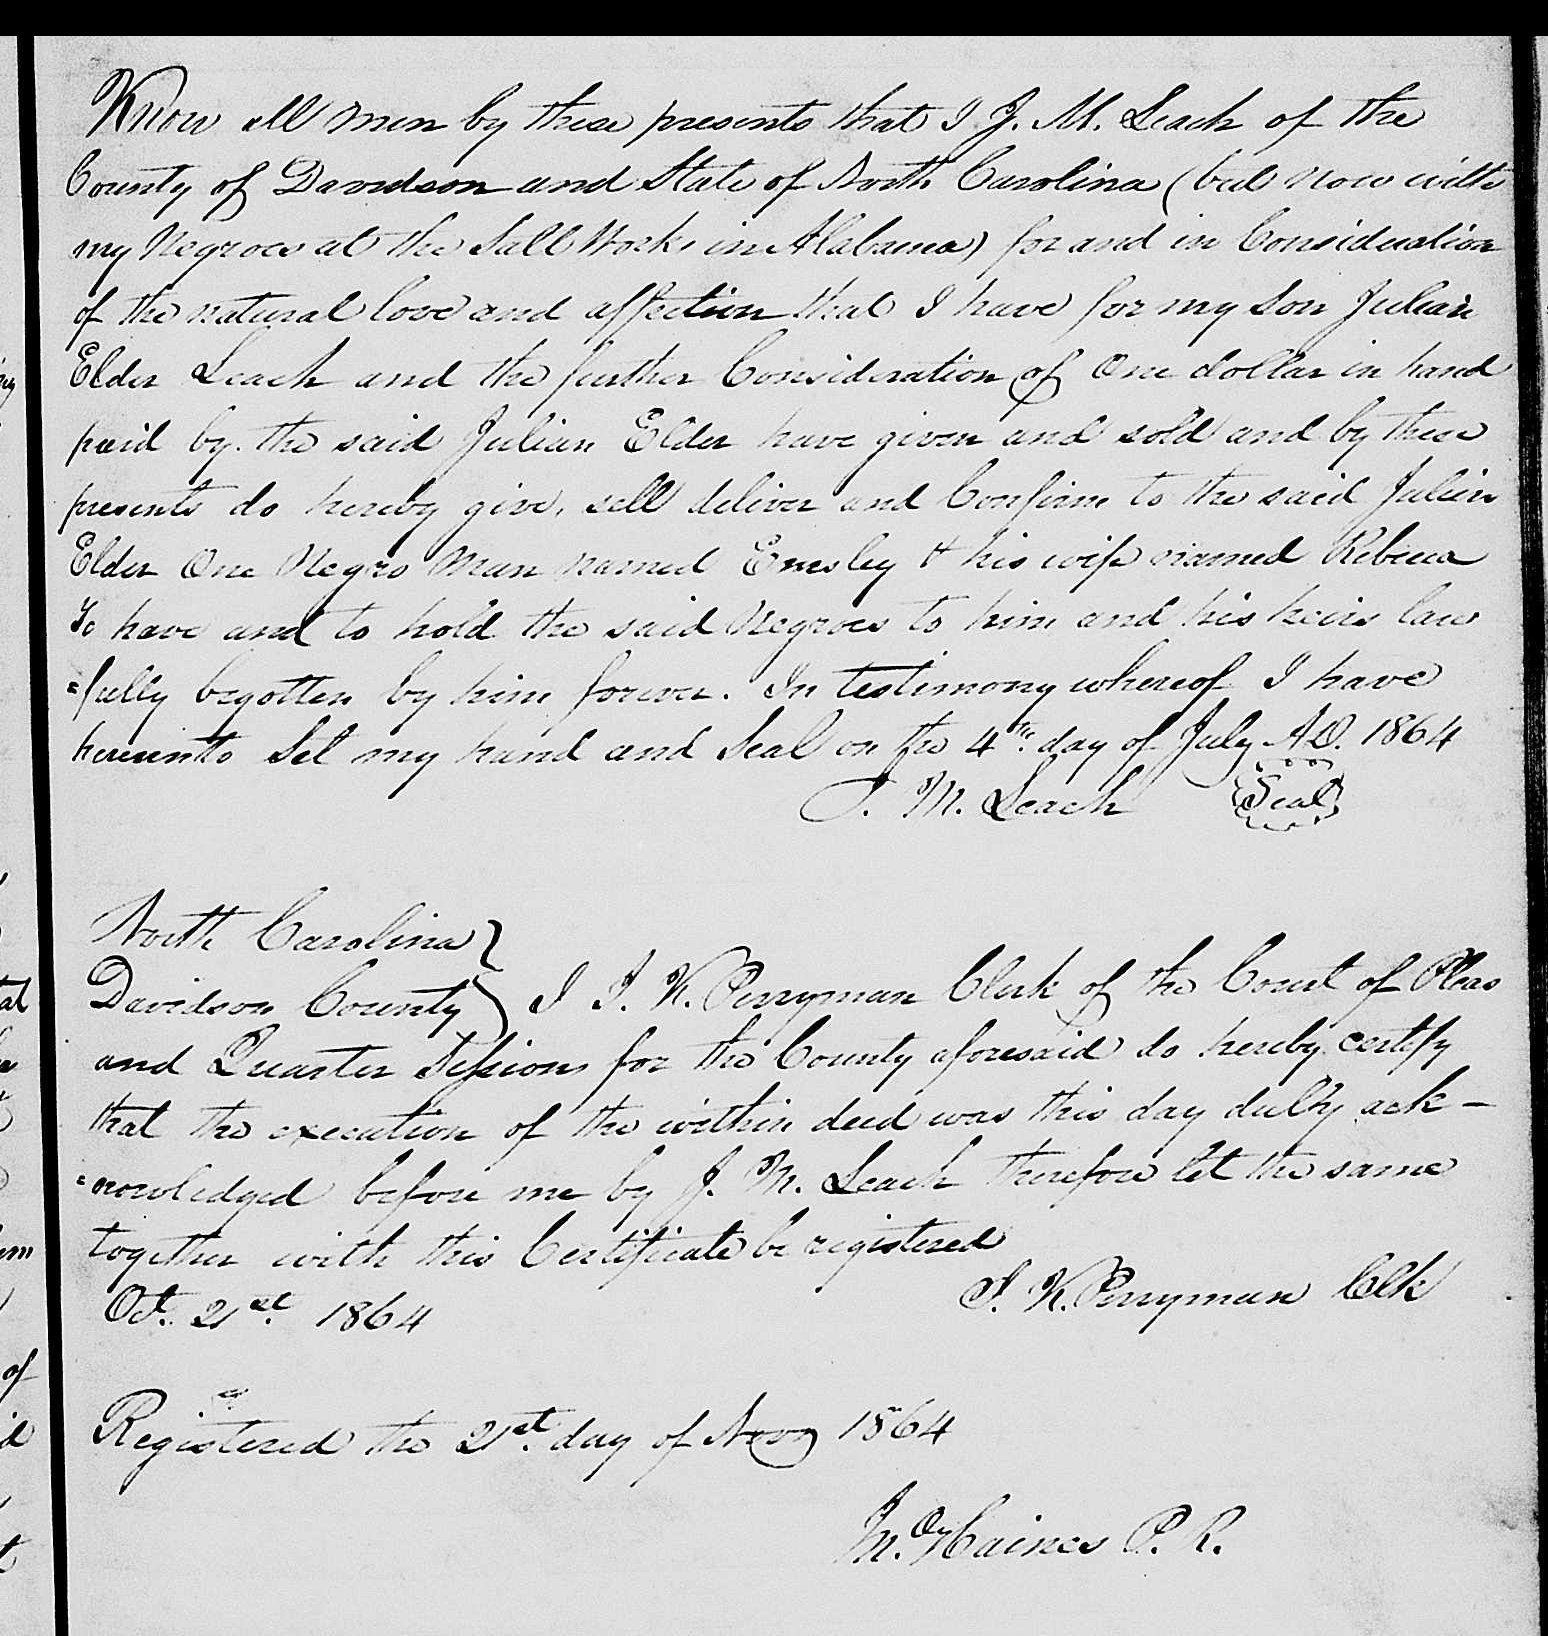 Know all men by these presents that I J. M. Leach of the
County of Davidson and State of North Carolina (but now with
my Negroes at the Salt Works in Alabama) for and in Consideration
of the natural love and affection that I have for my son Julian
Elder Leach and the further Consideration of One dollar in hand
paid by the said Julian Elder have given and sold and by these
presents do hereby give, sell deliver and Confirm to the said Julian
Elder One Negro Man named Emsley & his wife named Rebecca
To have and to hold the said Negroes to him and his heirs law
=fully begotten by him forever. In testimony whereof I have
hereunto Set my hand and Seal on the 4th day of July A.D. 1864
J. M. Leach Seal
North Carolina }
Davidson County } I I. K. Perryman Clerk of the Court of Pleas
and Quarter Sessions for the County aforesaid do hereby certify
that the execution of the within deed was this day dully ack-
=nowledged before me by J. M. Leach therefore let the same
together with this Certificate be registered
Oct. 21st 1864 I. K. Perryman Clk
Registered the 21st day of Nov 1864
Haines P. R.